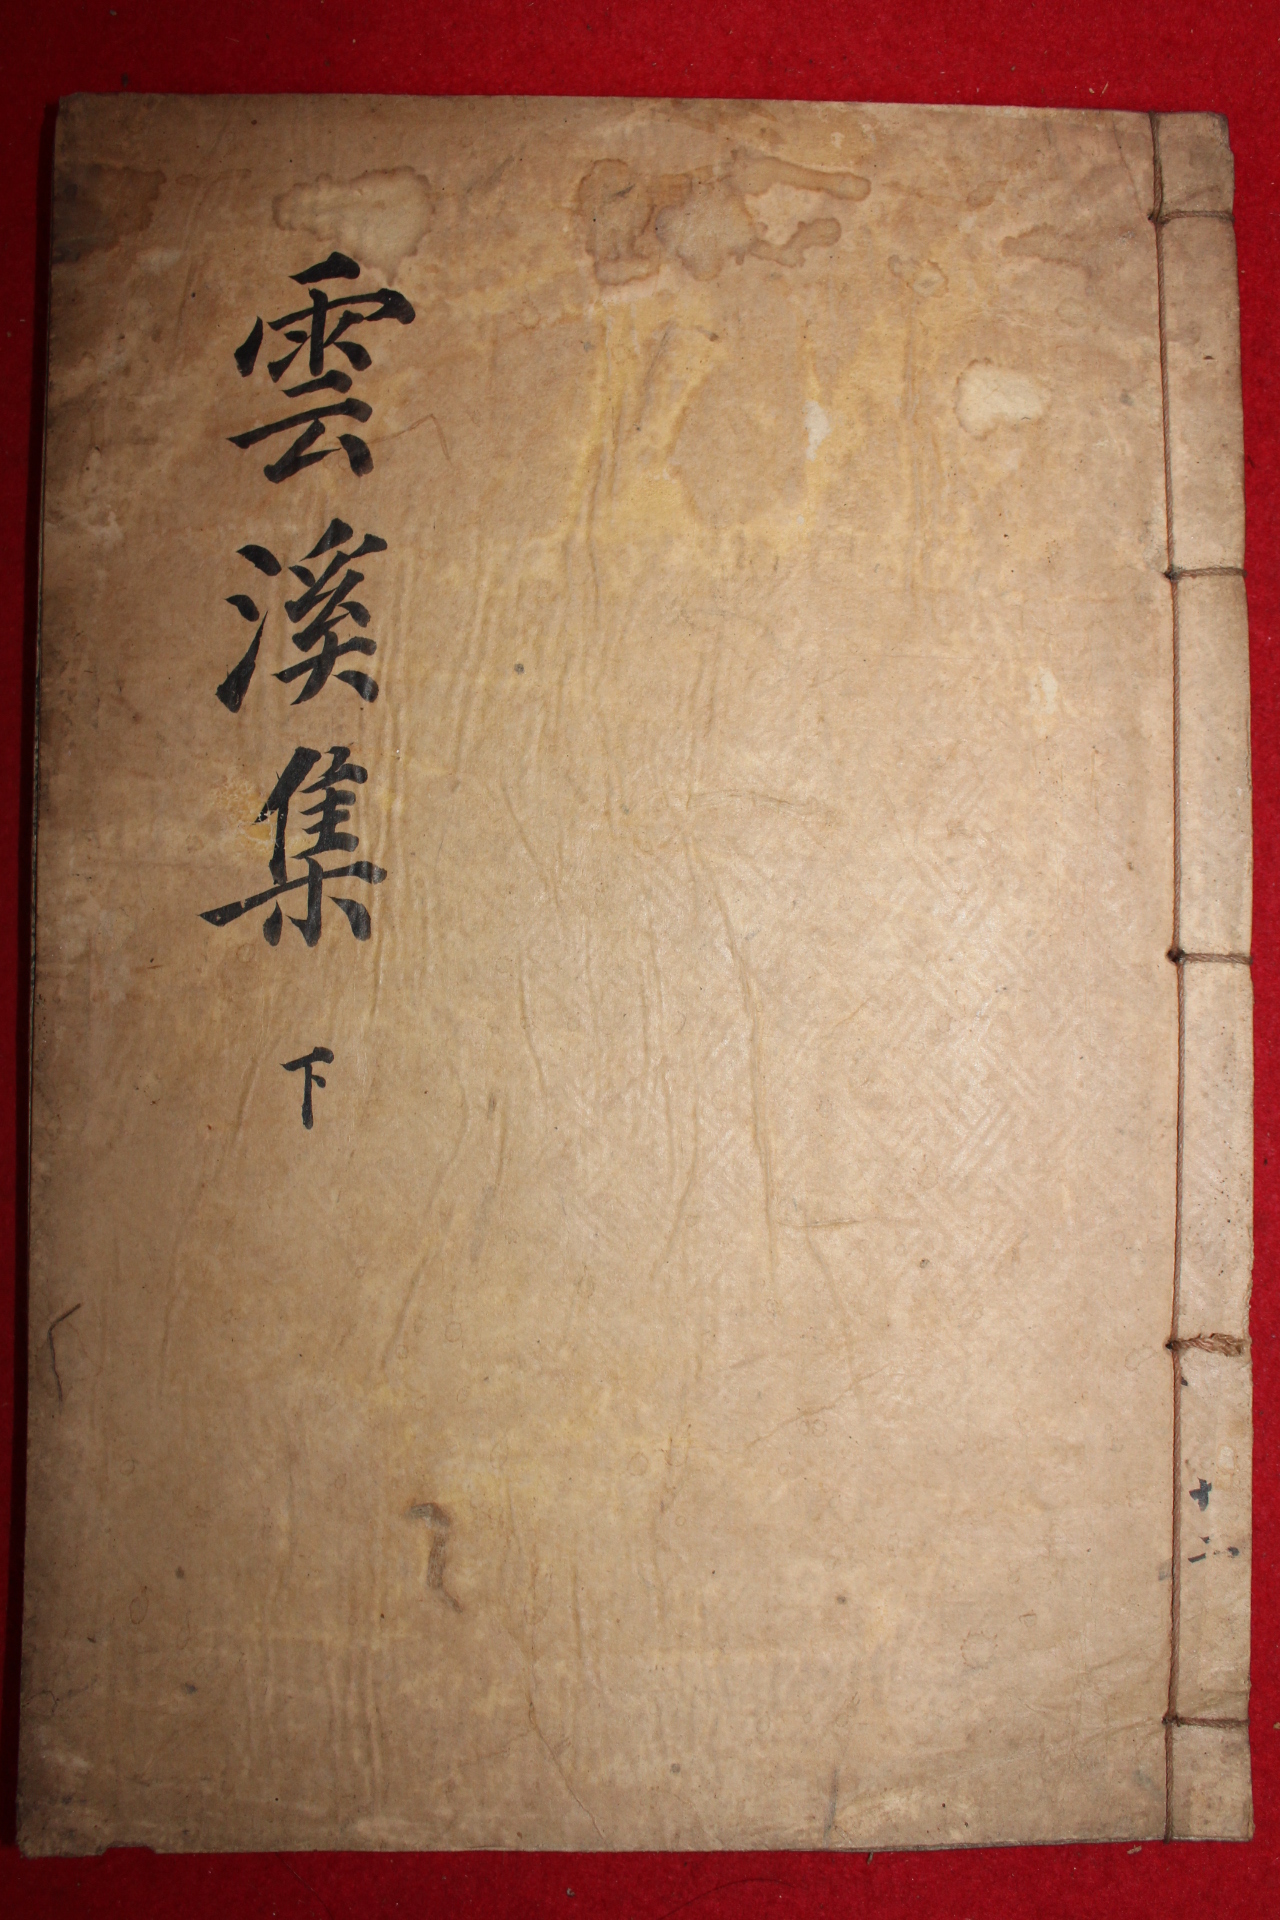 雲溪集 下
十六